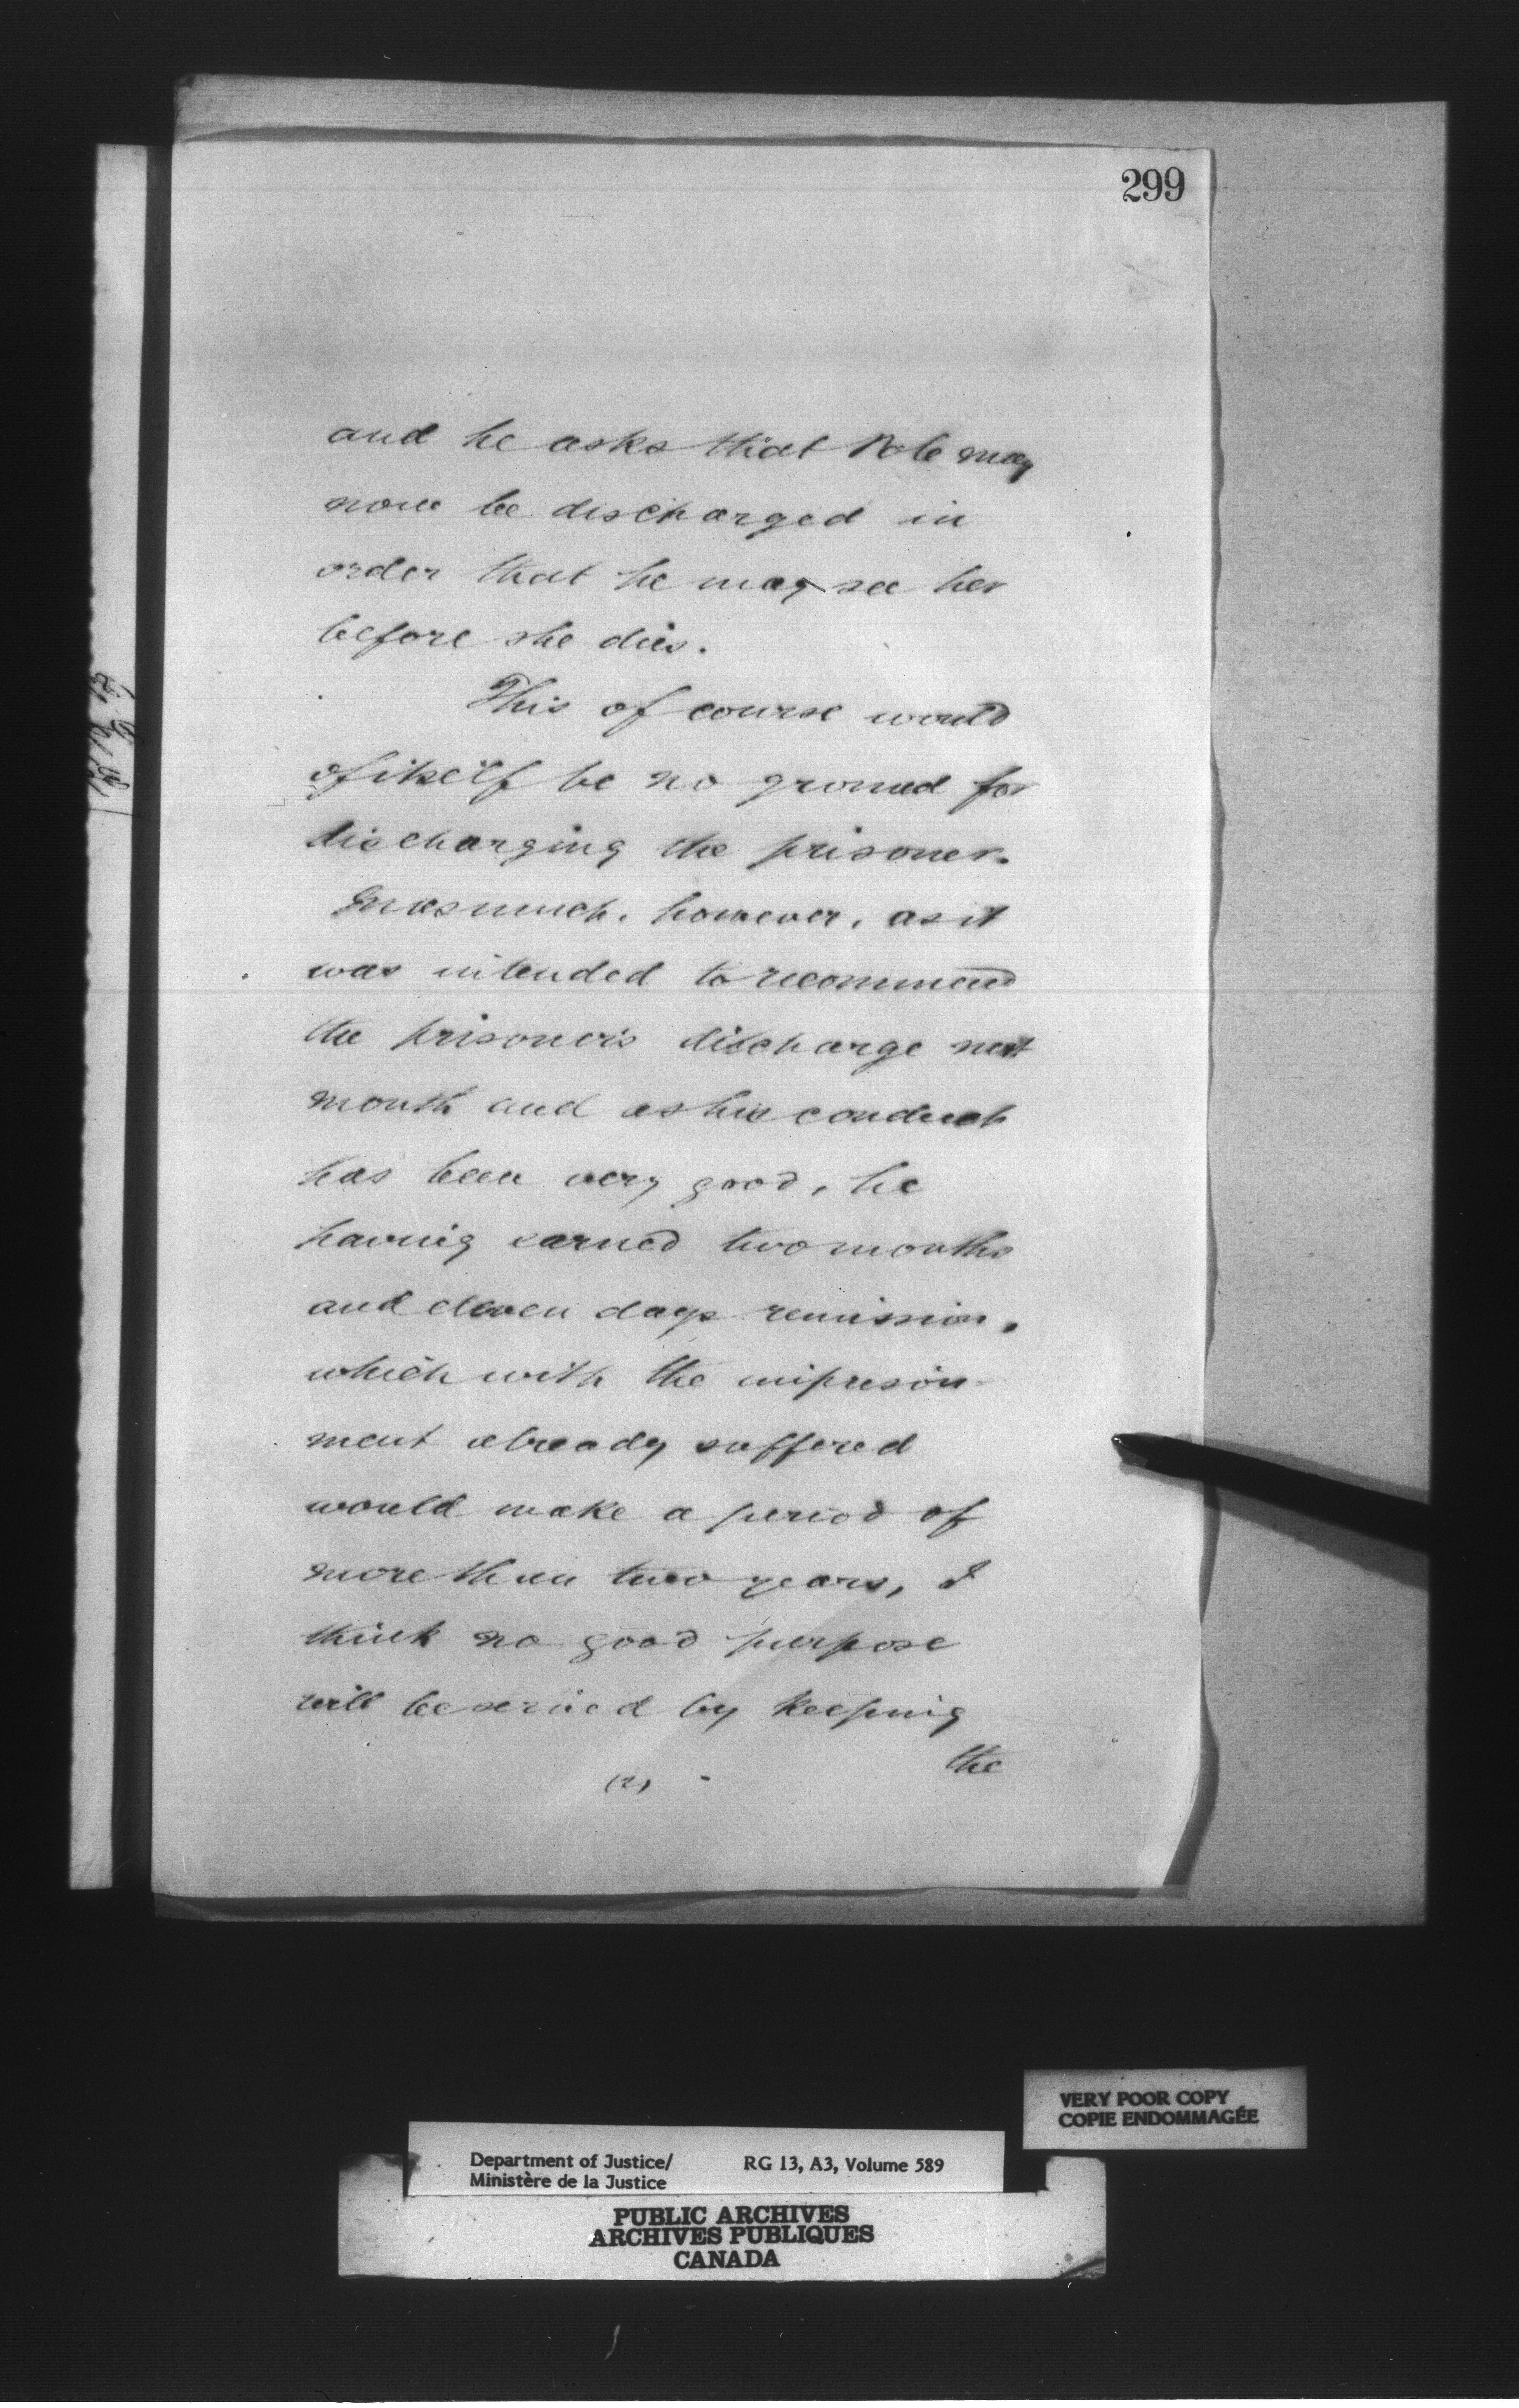 299
and he asks that Pole may
now be discharged in
order that he may see her
before she dies.
This of course would
of itself be no ground for
discharging the prisoner.
Inasmuch, however, as it
was intended to recommend
the prisoner's discharge next
month and as his conduct
has been very good, he
having earned two months
and eleven days remission,
which with the imprison-
ment already suffered
would make a period of
more than two years, I
think no good purpose
will be served by keeping
the
(2)
VERY POOR COPY
COPIE ENDOMMAGÉE
Department of Justice/ RG 13, A3, Volume 589
Ministère de la Justice
PUBLIC ARCHIVES
ARCHIVES PUBLIQUES
CANADA